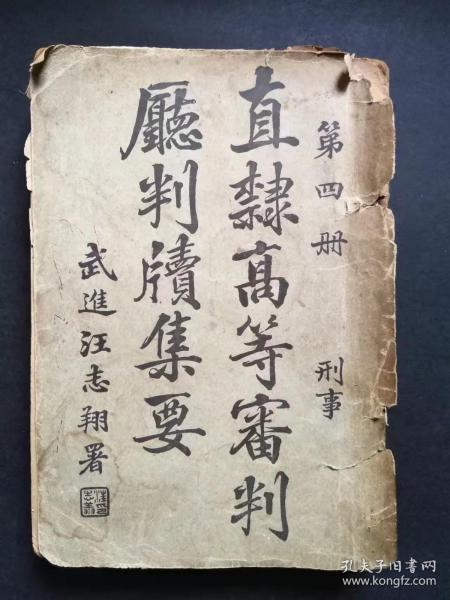 第四册 刑事
直隸高等審判
廳判牘集要
武進汪志翔署
孔夫子旧书网
www.kongfz.com